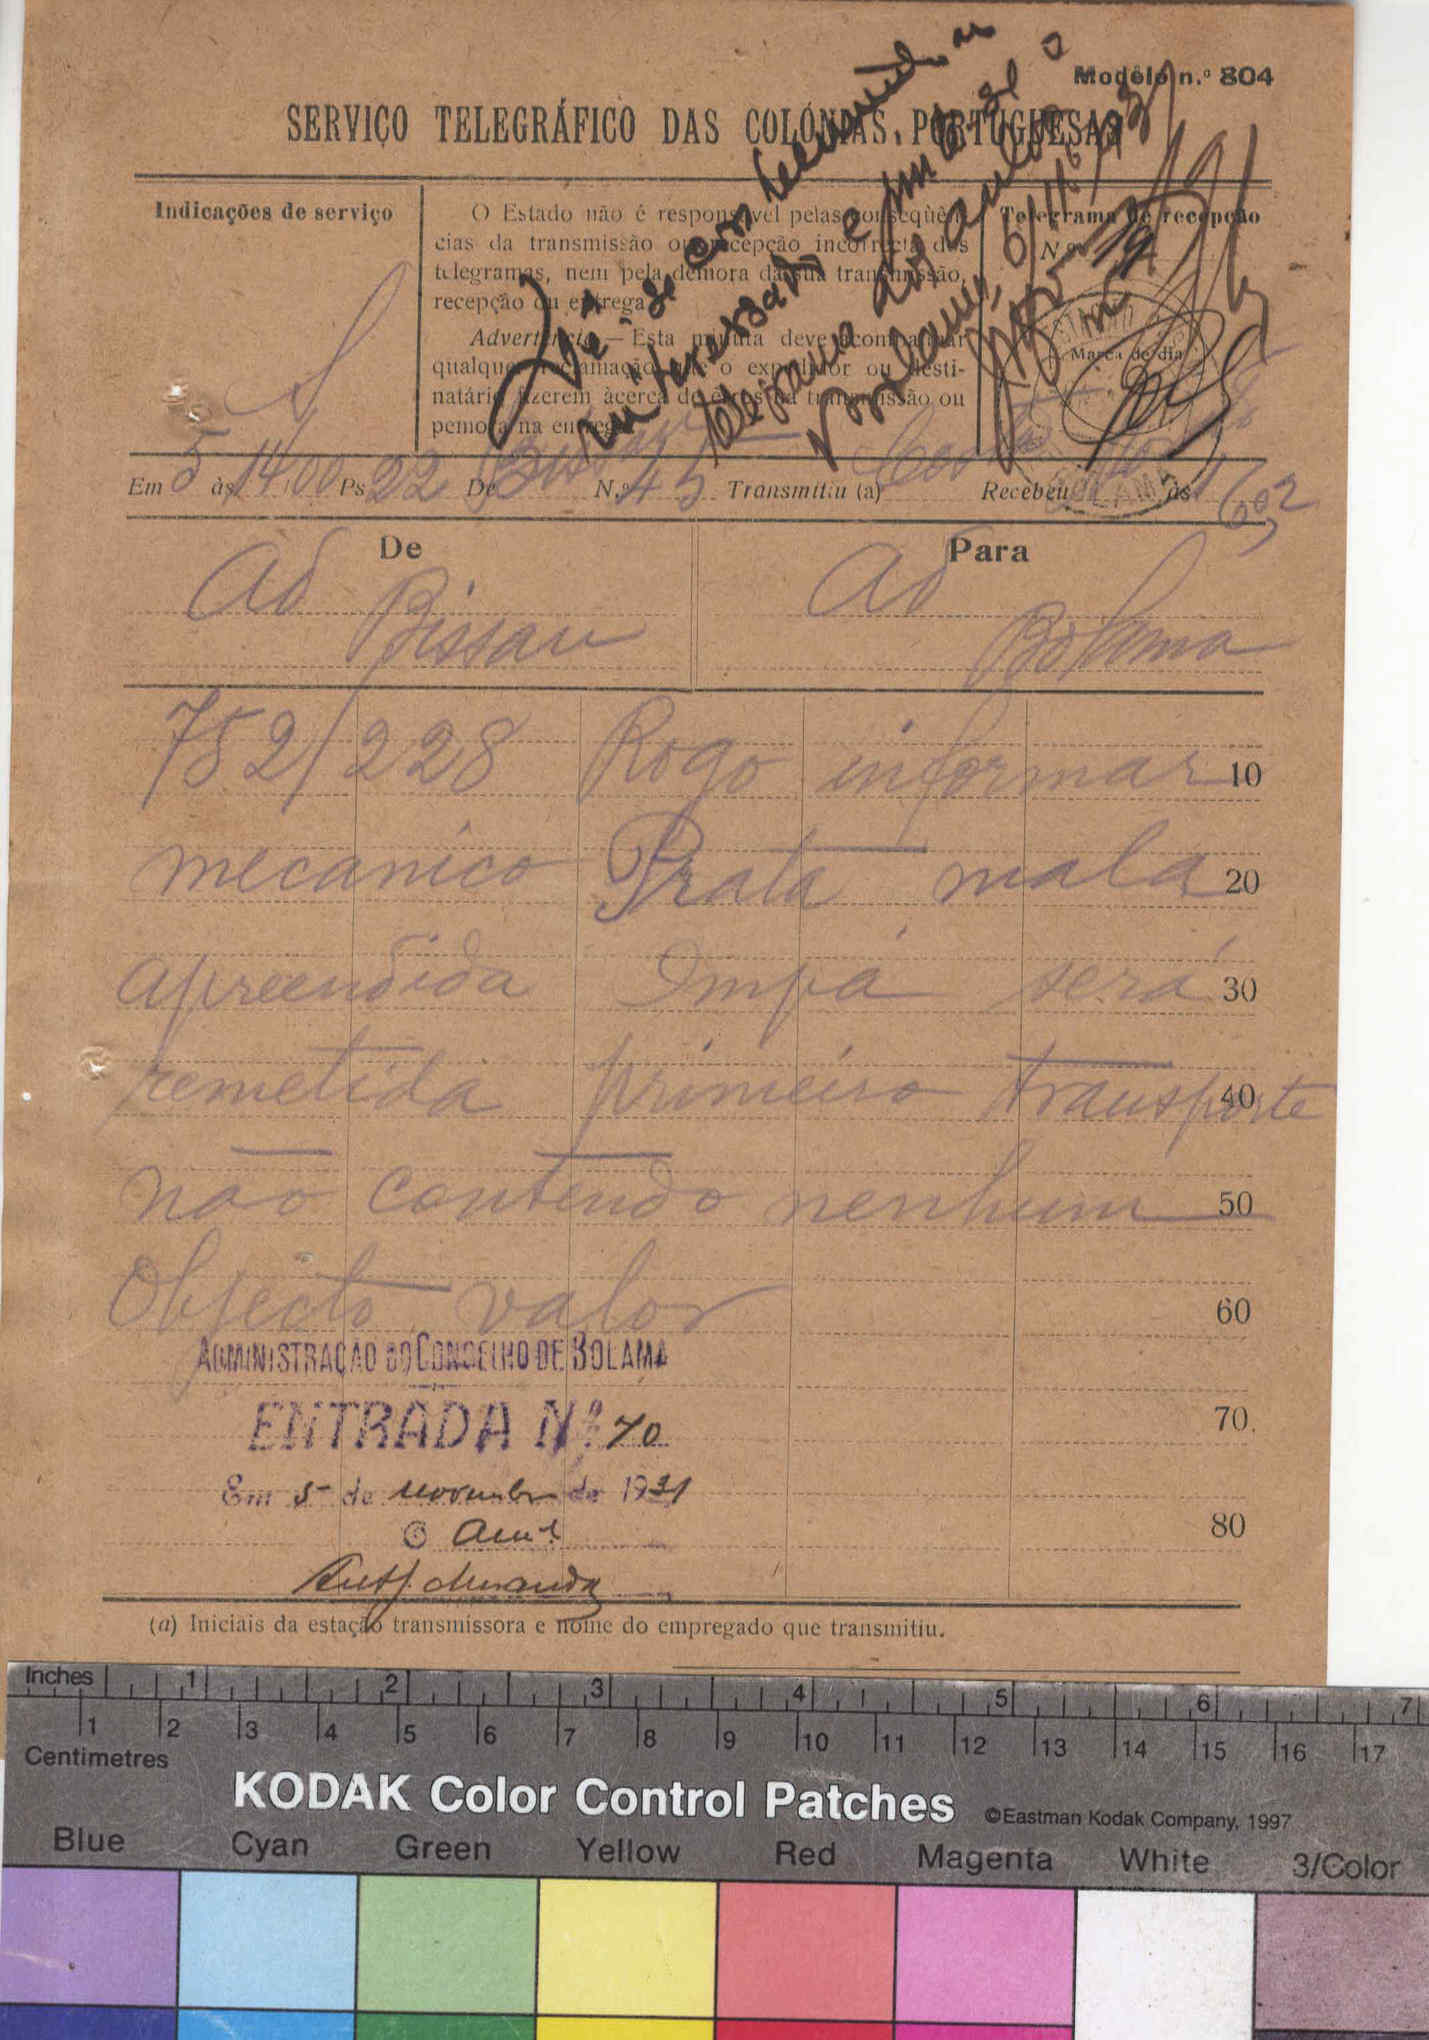 Modêlo n.º 804
SERVIÇO TELEGRÁFICO DAS COLÓNIAS PORTUGUESAS
Indicações de serviço
O Estado não é responsável pelas conseqüên-
cias da transmissão ou recepção incorrecta dos
telegramas, nem pela demora da sua transmissão,
recepção ou entrega.
Advertência.—Esta minuta deve acompanhar
qualquer reclamação que o expedidor ou desti-
natário fizerem àcerca de erros na transmissão ou
pemora na entrega.
Telegrama de recepção
N.º 19
Marca de dia
BOLAMA
Dê-se conhecimento ao
interessado e junte-se o
telegrama aos autos
Bolama, 6/11/931
Em 5 às 1400 Ps 22 De Bissau N.º 45 Transmitiu (a) Recebeu às 1602
De
Para
Ad
Bissau
Ad
Bolama
752/228 Rogo informar 10
mecanico Prata mala 20
apreendida Impá será 30
remetida primeiro transporte 40
não contendo nenhum 50
Objecto valor 60
70
80
ADMINISTRAÇÃO DO CONCELHO DE BOLAMA
ENTRADA N.º 70
Em 5 de novembro de 1931
O
(a) Iniciais da estação transmissora e nome do empregado que transmitiu.
Inches 1 2 3 4 5 6 7
1 2 3 4 5 6 7 8 9 10 11 12 13 14 15 16 17
Centimetres
KODAK Color Control Patches ©Eastman Kodak Company, 1997
Blue Cyan Green Yellow Red Magenta White 3/Color